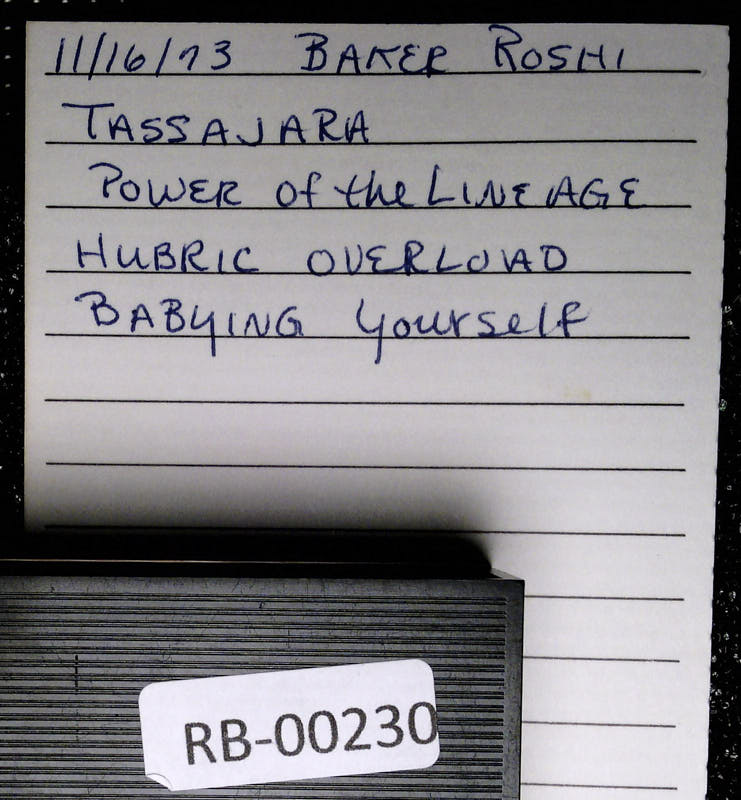 11/16/73 BAKER ROSHI
TASSAJARA
POWER of the LINEAGE
HUBRIC OVERLOAD
BABYING yourself
RB-00230